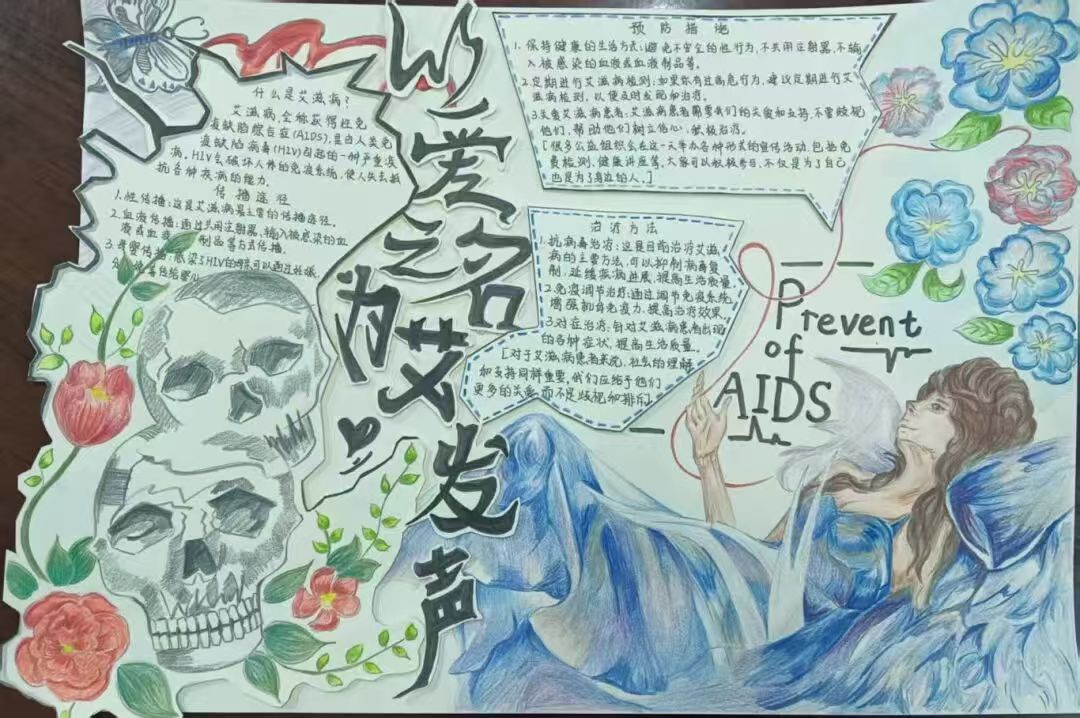 以爱之名
为艾发声
什么是艾滋病?
艾滋病,全称获得性免
疫缺陷综合征(AIDS),是由人类免
疫缺陷病毒(HIV)引起的一种严重疾
病。HIV会破坏人体的免疫系统,使人失去抵
抗各种疾病的能力。
传播途径
1.性传播:这是艾滋病最主要的传播途径。
2.血液传播:通过共用注射器,输入被感染的血
液或血液制品等方式传播。
3.母婴传播:感染了HIV的母亲可以通过妊娠、
预防措施
1.保持健康的生活方式:避免不安全的性行为,不共用注射器,不输
入被感染的血液或血液制品等。
2.定期进行艾滋病检测:如果你有过高危行为,建议定期进行艾
滋病检测,以便及时发现和治疗。
3.关爱艾滋病患者:艾滋病患者需要我们的关爱和支持,不要歧视
他们,帮助他们树立信心,积极治疗。
[很多公益组织会在这一天举办各种形式的宣传活动,包括免
费检测,健康讲座等,大家可以积极参与,不仅是为了自己
也是为了身边的人。]
治疗方法
1.抗病毒治疗:这是目前治疗艾滋
病的主要方法,可以抑制病毒复
制,延缓疾病进展,提高生活质量
2.免疫调节治疗:通过调节免疫系统,
增强机体免疫力,提高治疗效果,
3.对症治疗:针对艾滋病患者出现
的各种症状,提高生活质量。
[对于艾滋病患者来说,社会的理解
和支持同样重要,我们应给予他们
更多的关爱,而不是歧视和排斥]
Prevent
of
AIDS